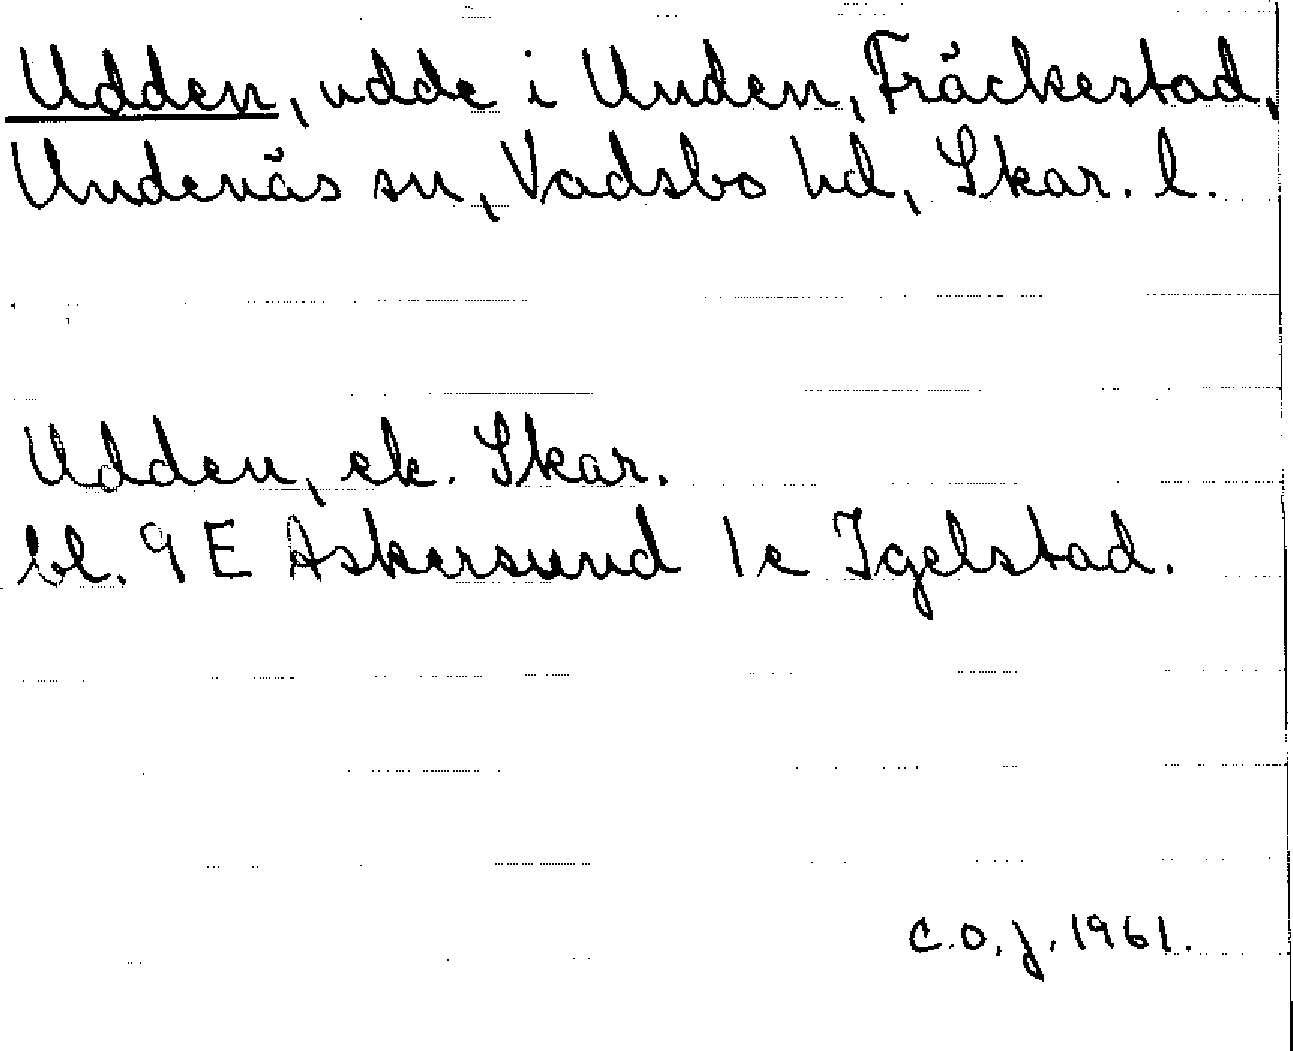 Udden, udde i Unden, Fräckestad,
Undenäs sn, Vadsbo hd, Skar. l.
Udden, ek. Skar.
bl. 9 E Askersund 1 c Igelstad.
C.O.J. 1961.